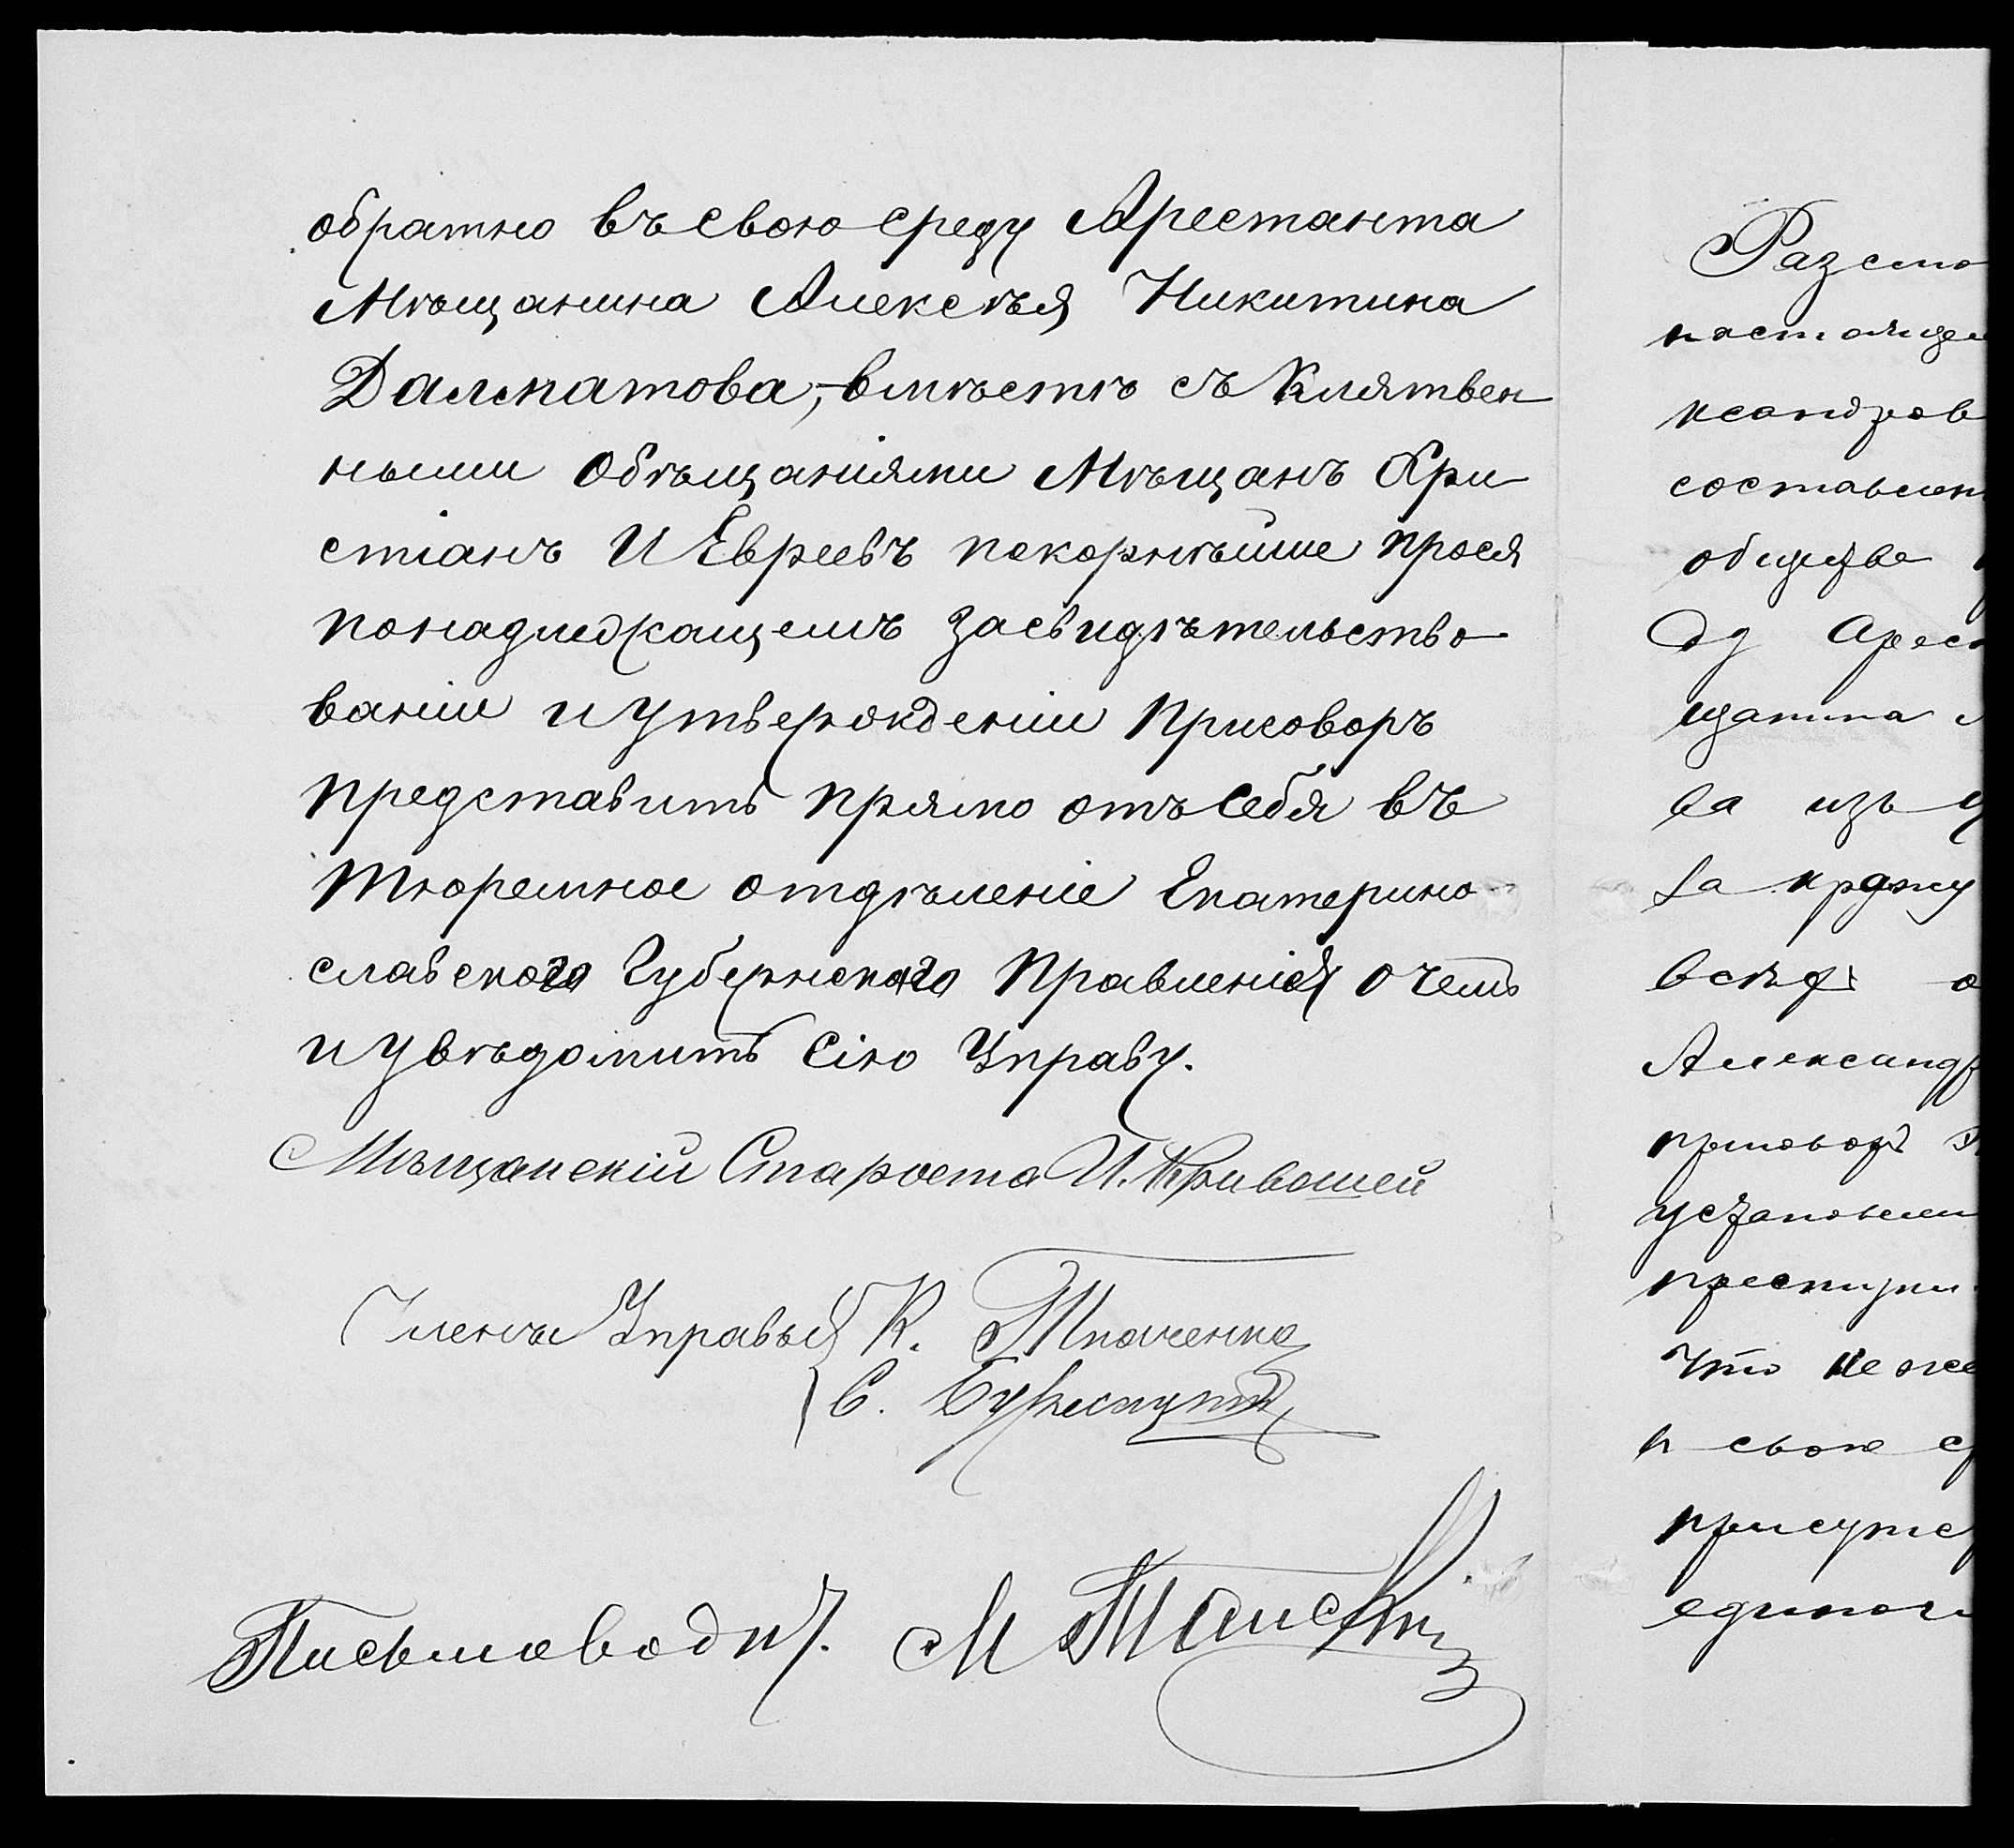 обратно въ свою среду Арестанта
Мѣщанина Алексѣя Никитина
Далматова, вмѣстѣ съ Клятвен
ными Обѣщаніями Мѣщанъ Хри
стіанъ И Евреевъ покорнѣйше прося
понадлежащемъ засвидѣтельство
ваніи и утвержденіи Приговоръ
представить прямо отъ себя въ
Тюремное отдѣленіе Екатерино
славского Губернского Правленія о чемъ
и увѣдомить Сію Управу.
Мѣщанскій Староста И. Кривошей
Члены Управы К. Ткаченко
С.
Письмовод М
Разсмо
настояще
ксандров
составлен
общество
Арес
щанина
ва изъ
за кражу
всѣхъ о
Александр
приговоръ
установлен
что не же
в свою ср
присутс
единогл